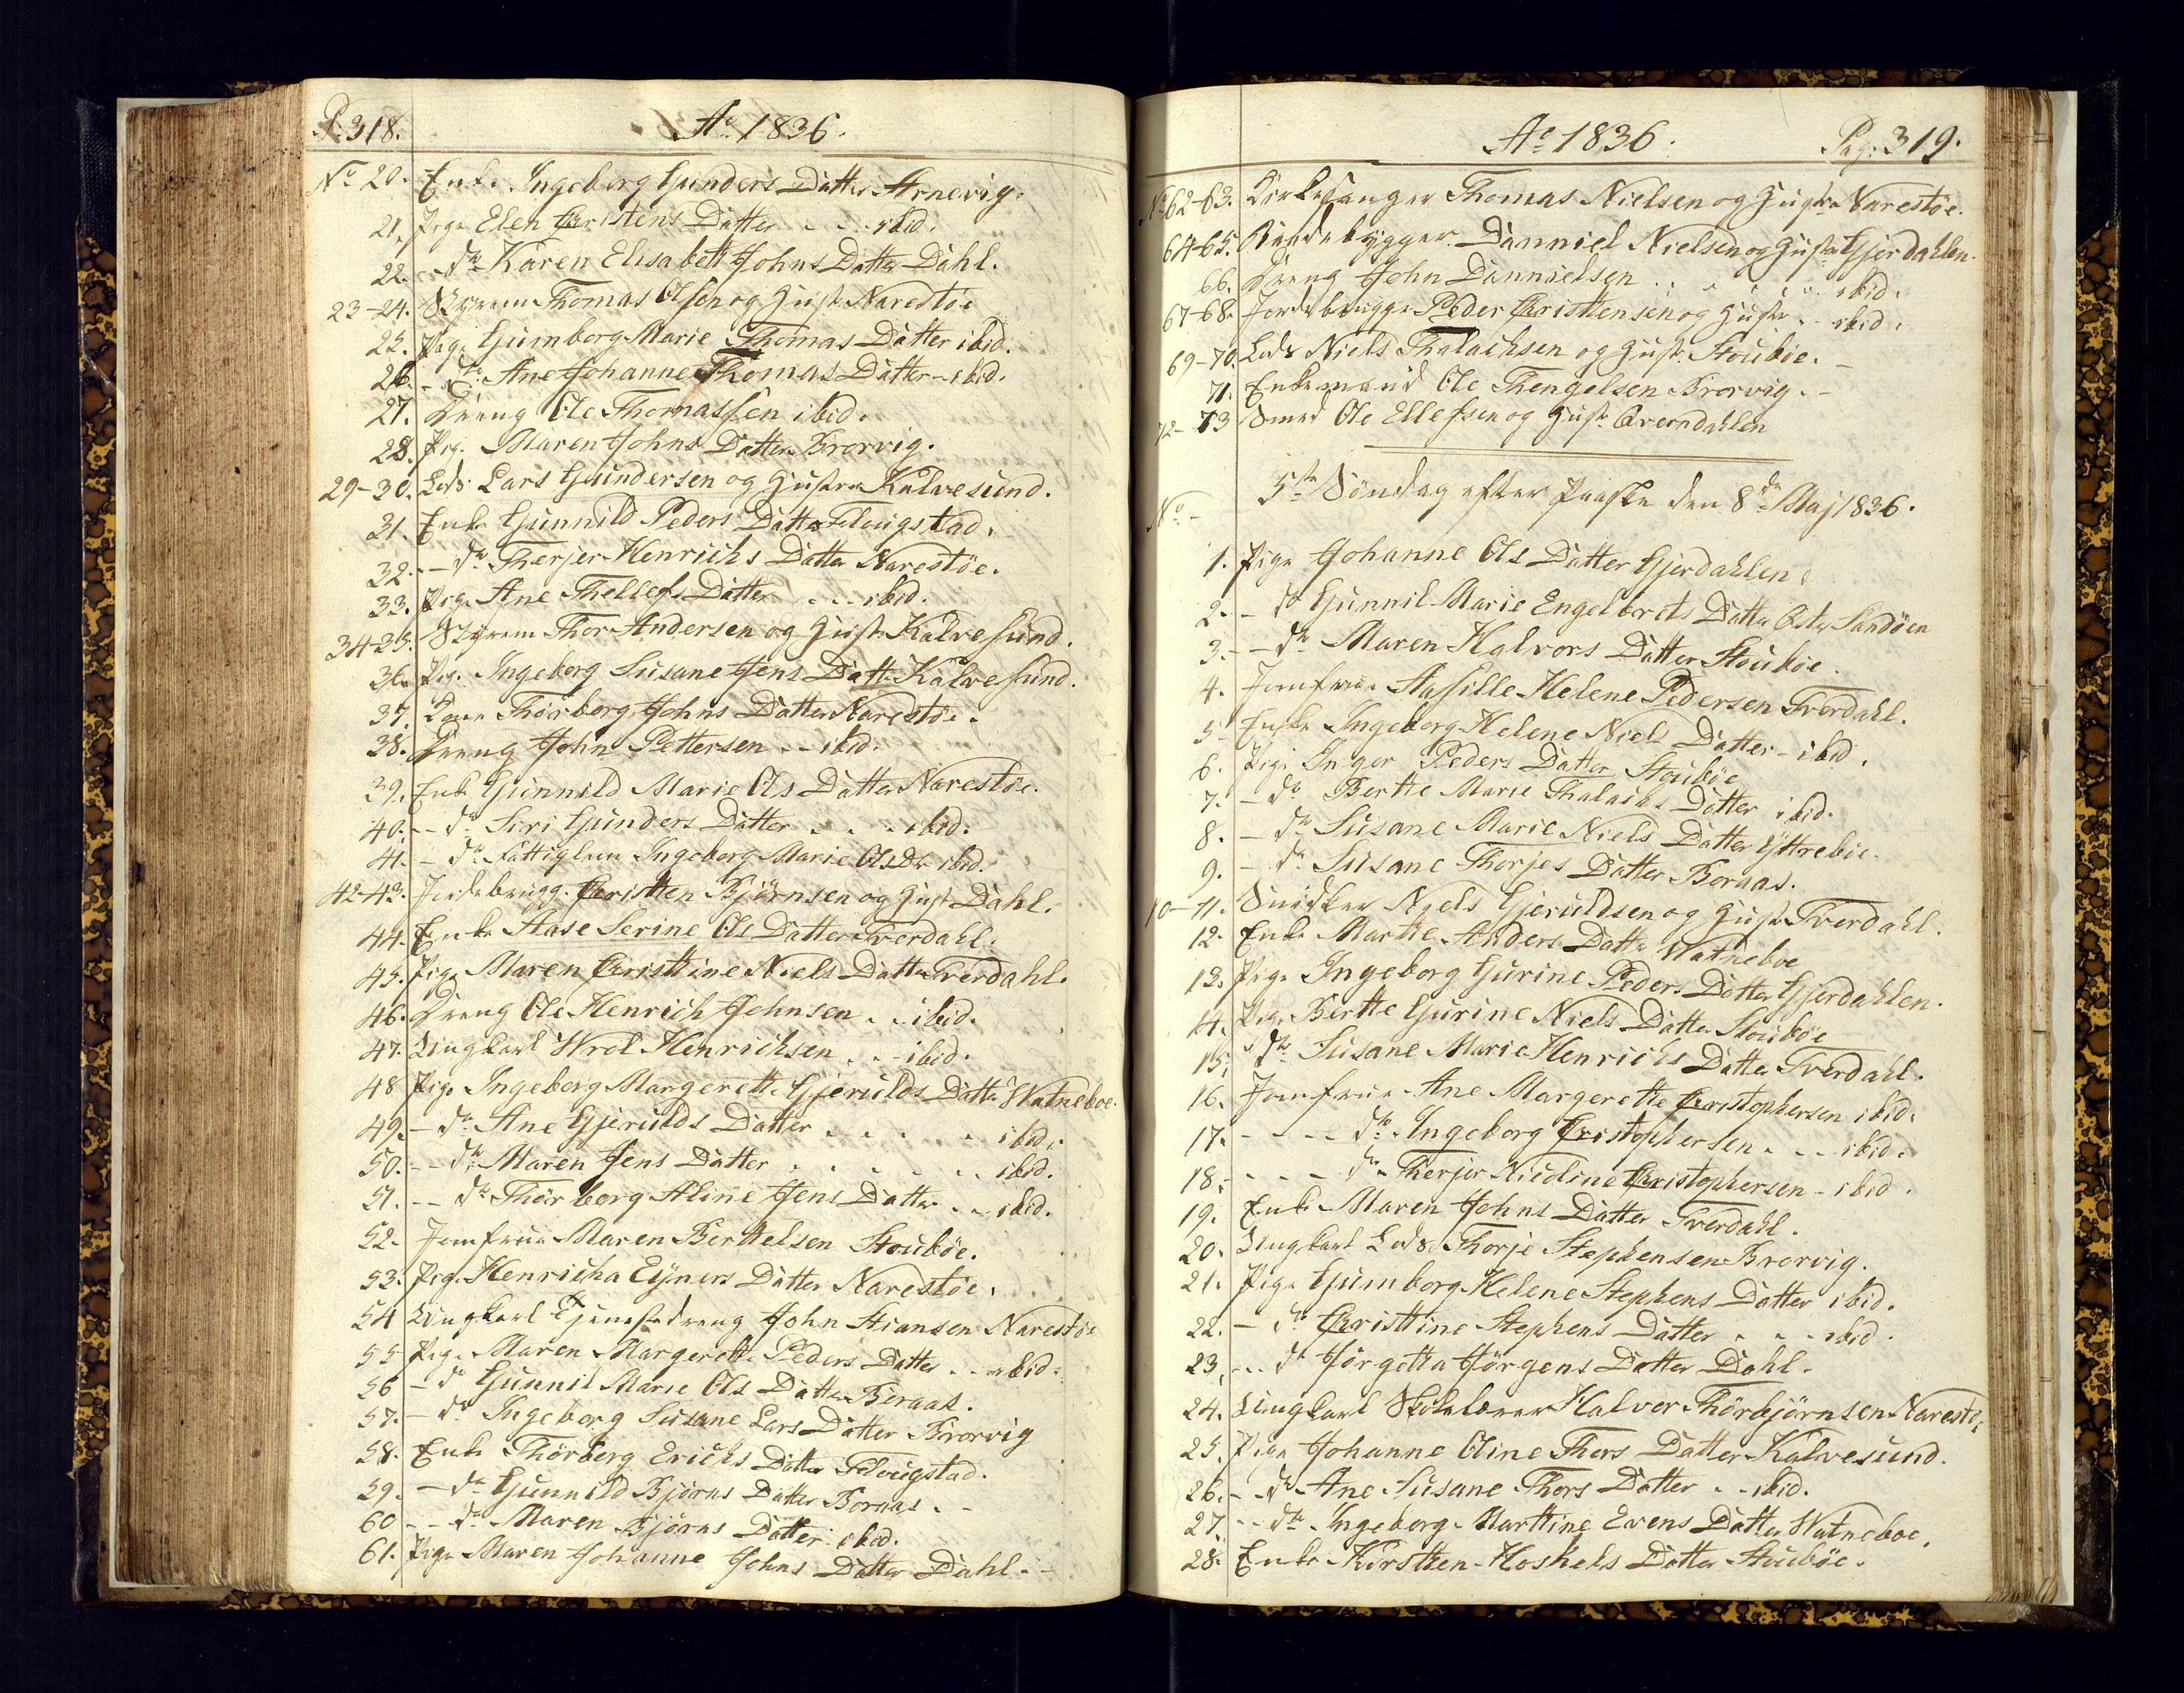 P. 318.
Ao 1836.
No 20. Enke Ingeborg Gunders Datter Arnevig.
21. Pige Elen Christens Datter . . . ibid.
22. - do Karen Elisabeth Johns Datter Dahl.
23-24. Styrm Thomas Olsen og Hustr Narestöe
25. Pige Gumborg Marie Thomas Datter ibid.
26. - do Ane Johanne Thomas Datter - ibid.
27. Dreng Ole Thomassen ibid.
28. Pig. Maren Johns Datter Brorvig.
29-30. Lods Lars Gundersen og Hustru Kalvesund.
31. Enke Gunnild Peders Datter Flougstad.
32. - do Therjer Henrichs Datter Narestöe.
33. Pige Ane Thellefs Datter . . . ibid.
34 25. Styrm Thor Andersen og Hustr Kalvesund.
36. Pig. Ingeborg Susane Jens Datt. Kalvesund.
37. Thörborg Johns Datter Narestöe.
38. Dreng John Pettersen . . ibid.
39. Enk Gunnild Marie Ols Datter Narestöe.
40. - do Siri Gunders Datter . . . ibid.
41. - do Fattiglem Ingeborg Marie Ols Dr ibid.
42-43. Jordebrugg. Christen Björnsen og Hust Dahl.
44. Enke Aase Serine Ols Datter Tverdahl.
45. Pige Maren Christine Niels Datter Tverdahl.
46. Dreng Ole Henrich Johnsen . . ibid.
47. Ungkarl Wrol Henrichsen . . ibid.
48 Pige Ingeborg Margerette Gjerulds Datter Watneboe.
49. - do Ane Gjerulds Datter . . . . ibid.
50. - do Maren Jens Datter . . . . . . ibid.
51. - - do Thörborg Aline Jens Datter . . ibid.
52. Jomfrue Maren Berttelsen Stouböe.
53. Pige Henricha Eyners Datter Narestöe.
54 Ungkarl Tjenestedreng John Stiansen Narestöe
55 Pige Maren Margerette Peders Datter . . ibid.
56 - do Gunnil Marie Ols Datter Boraas.
57. - do Ingeborg Susane Lars Datter Brorvig
58. Enke Thörborg Erichs Datter Flougstad.
59. - do Gunnild Björns Datter Boraas . -
60 - - do Maren Björns Datter ibid.
61. Pige Maren Johanne Johns Datter Dahl. -
Ao 1836.
Pag. 319.
No 62-63. Kirkesanger Thomas Nielsen og Hustr Narestöe.
64-65. Danniel Nielsen og Hustr Gjerdahlen.
66. Dreng John Dannielsen . . . . . ibid.
67-68. Jordebrugge Peder Christensen og Hustr . . ibid.
69-70. Lods Niels Thalachsen og Hustr Stouböe. -
71. Enkemand Ole Thengelsen Brorvig. -
72-73 Smed Ole Ellefsen og Hustr Qverndahlen
5te Söndag efter Paaske den 8de Maj 1836.
No -
1. Pige Johanne Ols Datter Gjerdahlen
2. - do Gunnil Marie Engelbrets Datter Oster Sandöen
3. - do Maren Halvors Datter Stouböe.
4. Jomfrue Aasille Helene Pedersen Tverdahl.
5 Enke Ingeborg Helene Niels Datter - ibid.
6. Pige Inger Peders Datter Stouböe
7. - do Bertte Marie Thalachs Datter ibid.
8. - do Susane Marie Niels Datter Ytreböe.
9. - do Susane Thorjes Datter Boraas.
10-11. Snidker Niels Gjeruldsen og Hustr Tverdahl.
12. Enke Marthe Anders Datter Watneboe
13. Pige Ingeborg Gurine Peders Datter Gjerdahlen.
14. Pige Bertte Gurine Niels Datter Stouböe
15. do Susane Marie Henrichs Datter Tverdahl.
16. Jomfrue Ane Margerette Christophersen ibid.
17. - - - do Ingeborg Christophersen . . . ibid.
18. - - - do Therjer Nicoline Christophersen - ibid.
19. Enke Maren Johns Datter Tverdahl.
20. Ungkarl Lods Thorje Stephensen Brorvig.
21. Pige Gumborg Helene Stephens Datter ibid.
22. - do Christine Stephens Datter . . . ibid.
23. . . do Jörgetta Jörgens Datter Dahl.
24. Ungkarl Skolelærer Halvor Thörbjörnsen Narestöe
25. Pige Johanne Oline Thors Datter Kalvesund.
26. - - do Ane Susane Thors Datter . . ibid.
27. - - do Ingeborg Marttine Evens Datter Watneboe.
28. Enke Kirsten Hoskels Datter Stouböe.